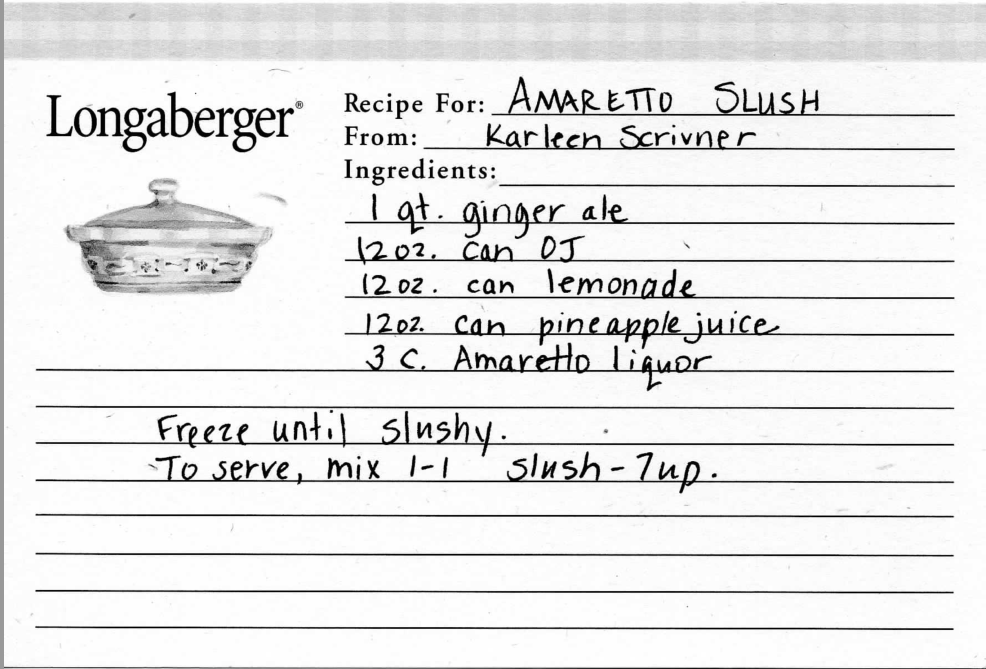 Longaberger®
Recipe For: AMARETTO SLUSH
From: Karleen Scrivner
Ingredients:
1 qt. ginger ale
12 oz. can OJ
12 oz. can lemonade
12 oz. can pineapple juice
3 C. Amaretto liquor
Freeze until slushy.
To serve, mix 1-1 slush - 7up.